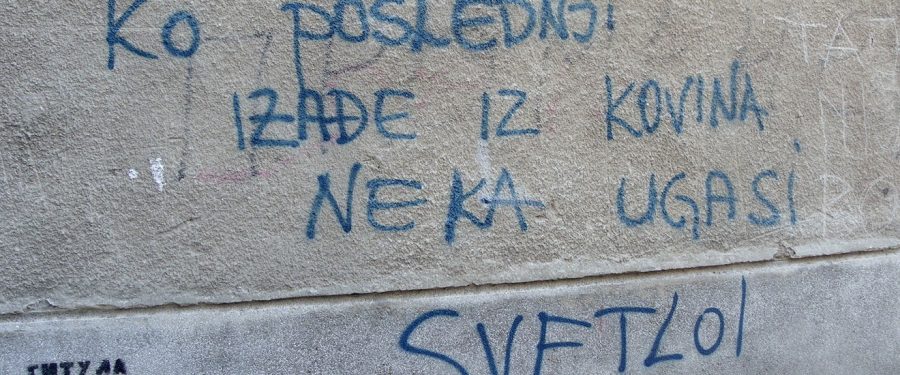 KO POSLEDNJI
IZAĐE IZ KOVINA
NEKA UGASI
SVETLO!
ГИТУЛА